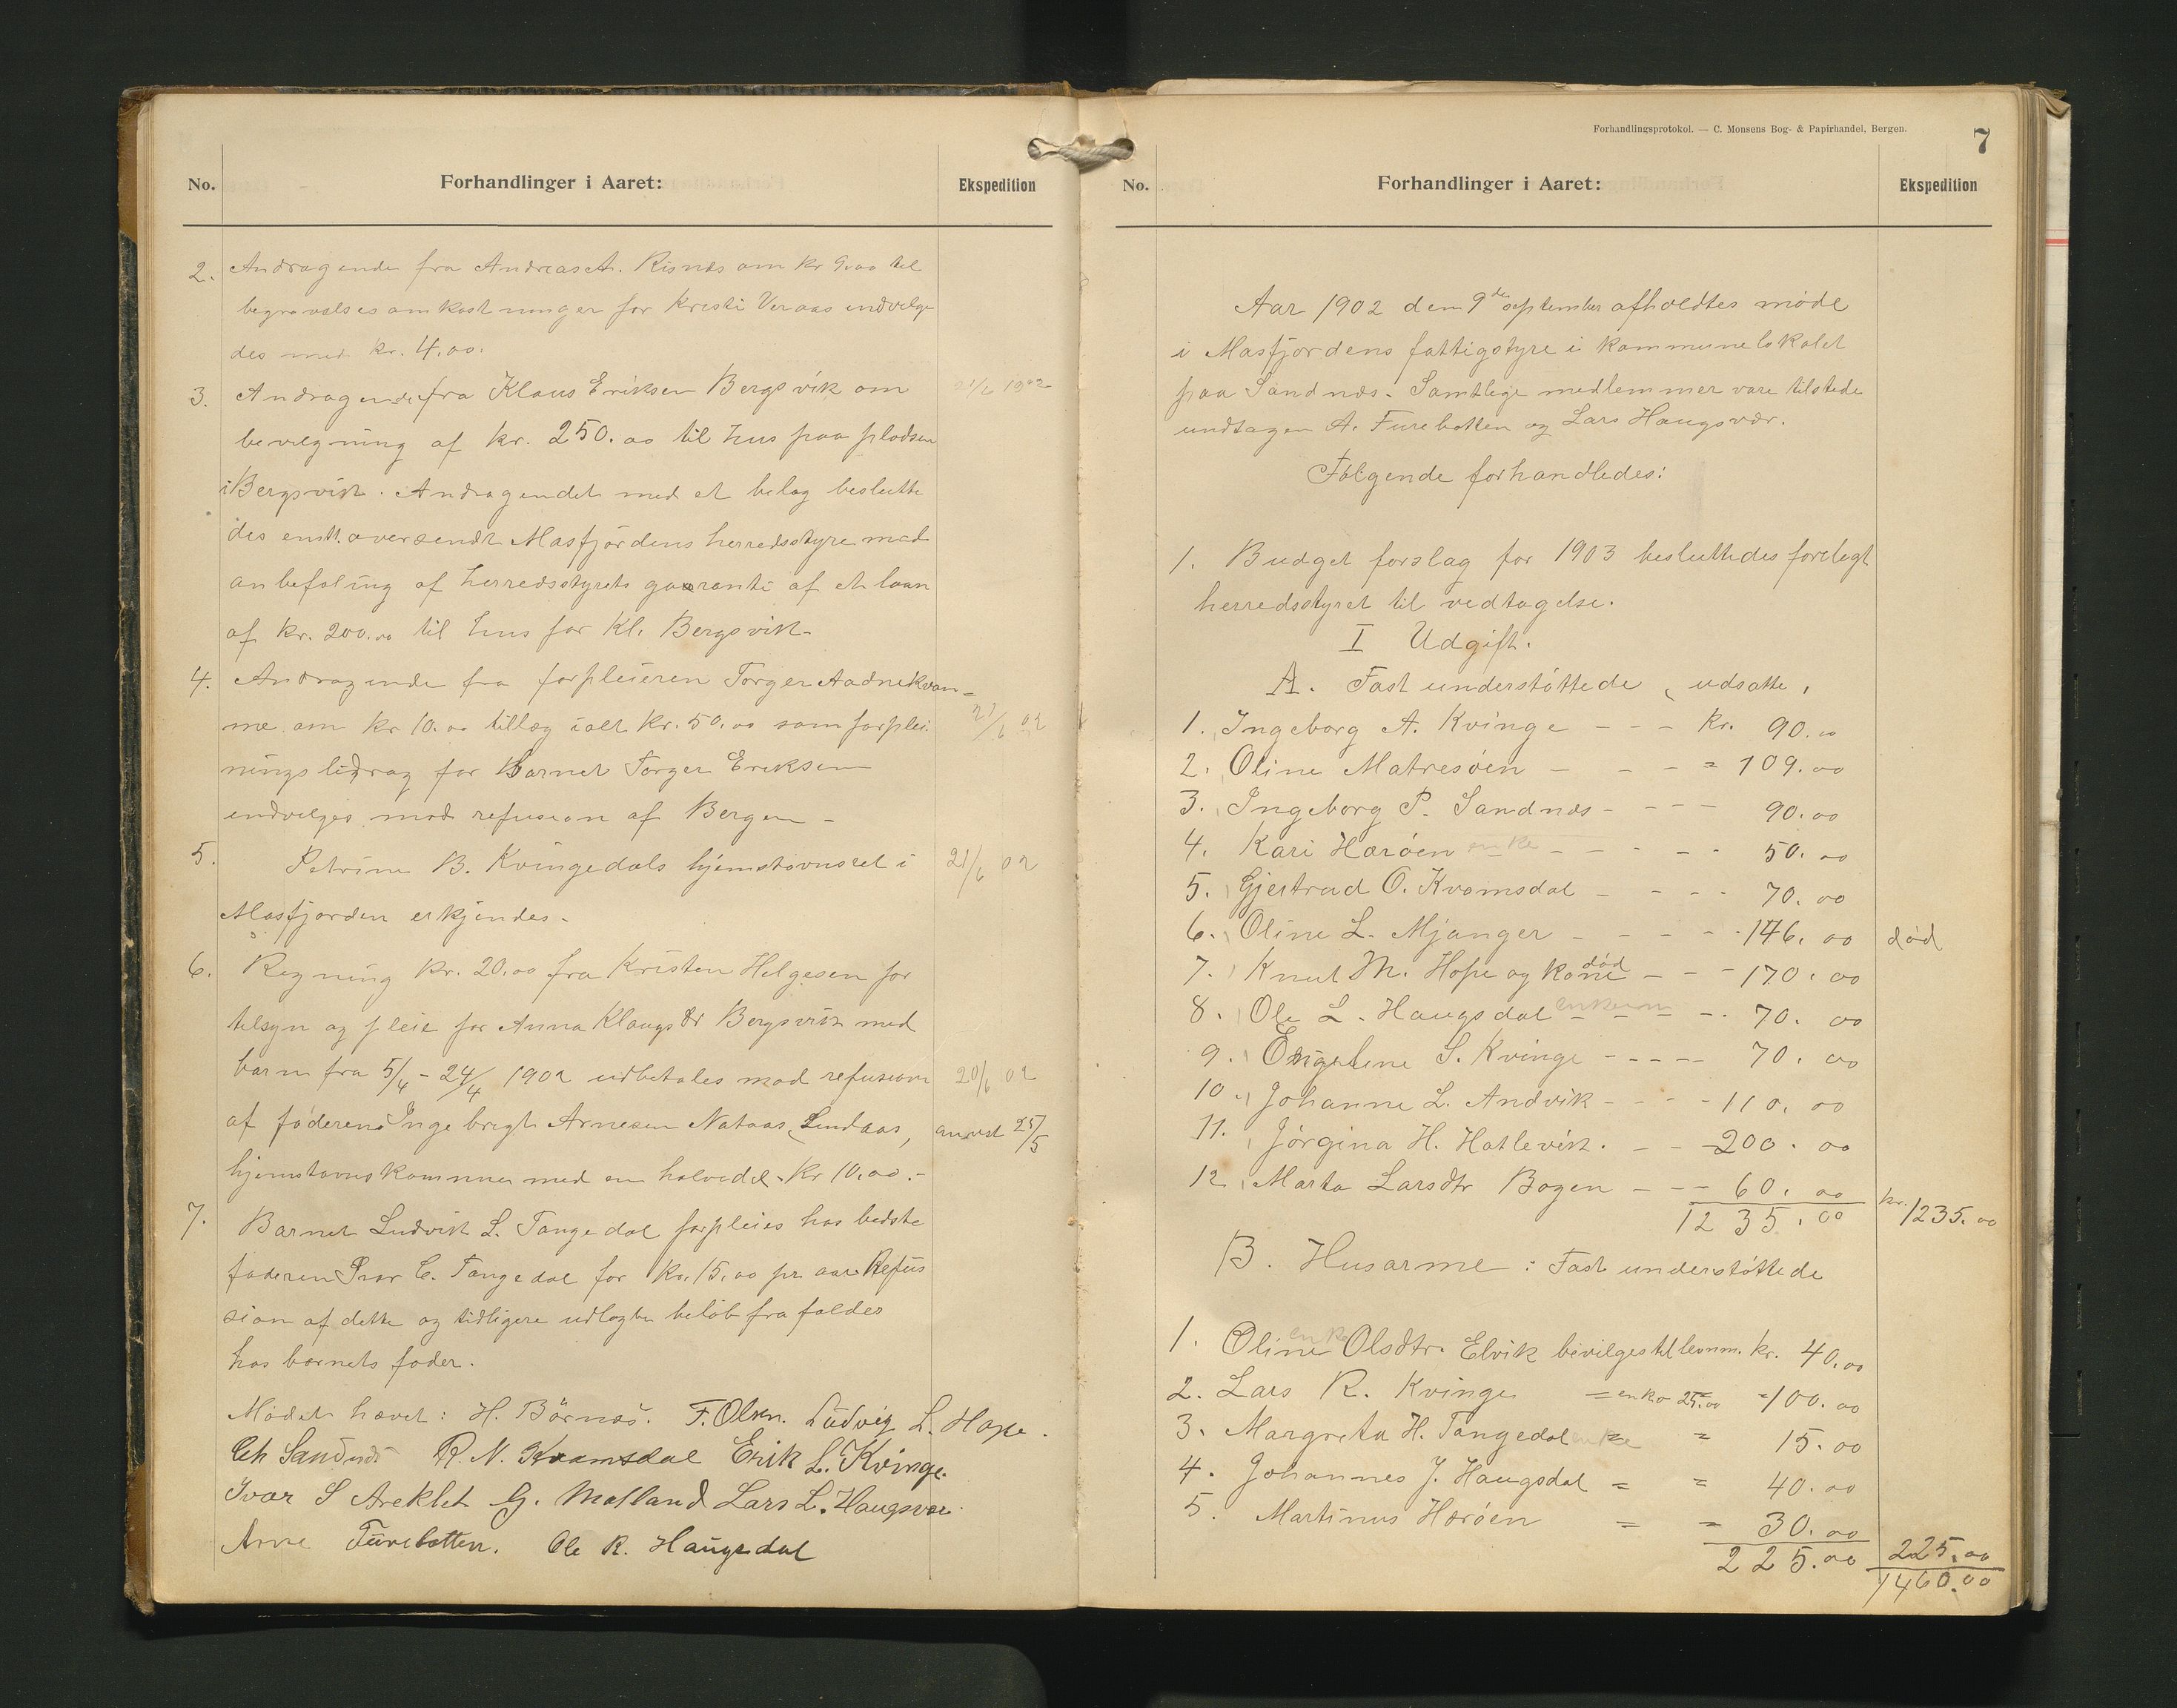 No. Forhandlinger i Aaret: Ekspedition
2. Andragende fra Andreas A. Risnes om kr 9.00 til
begravelsesomkostninger for Kristi Veraas indvilge
des med kr. 4.00.
3. Andragende fra Klaus Eriksen Bergsvik om 21/6 1902
bevilgning af kr. 250.00 til hus paa pladsen
i Bergsvik. Andragendet med et bilag beslutte
des oversendt Masfjordens herredsstyre med
anbefaling af herredsstyrets garanti af et laan
af kr. 200.00 til hus for Kl. Bergsvik -
4. Andragende fra forpleieren Torger Aadnekvam=
me om kr 10.00 tillæg ialt kr. 50.00 som forplei- 21/6 02
ningsbidrag for Barnet Torger Eriksen
indvilges mod refusion af Bergen -
5. Petrine B. Kvingedals hjemstavnsret i 21/6 02
Masfjorden erkjendes -
6. Regning kr. 20.00 fra Kristen Helgesen for
tilsyn og pleie for Anna Klaugsdr Bergsvik med
barn fra 5/4 - 24/4 1902 udbetales mod refusion 20/6 02
af faderen Ingebrigt Arnesen Nataas, Lindaas, anvist 25/5
hjemstavnskommune med en halvdel - kr 10.00.-
7. Barnet Ludvik L. Tangedal forpleies hos bedste
faderen Ivar C. Tangedal for kr. 15.00 pr. aar Refu
sion af dette og tidligere udlagte beløb frafaldes
hos barnets fader.
Mødet hævet: H. Börnes. F. Olsen. Ludvig L. Hope.
Ch Sandnes R. N. Kvamsdal Erik L. Kvinge.
Ivar S Areklet G. Matland Lars L. Haugsvær.
Arne Furebotten. Ole R. Haugsdal
Forhandlingsprotokol. — C. Monsens Bog- & Papirhandel, Bergen. 7
No. Forhandlinger i Aaret: Ekspedition
Aar 1902 den 9de september afholdtes møde
i Masfjordens fattigstyre i kommunelokalet
paa Sandnes. Samtlige medlemmer vare tilstede
undtagen A. Furebotten og Lars Haugsvær.
Følgende forhandledes:
1. Budget forslag for 1903 besluttedes forelagt
herredsstyret til vedtagelse.
I Udgift.
A. Fast understøttede, udsatte,
1. Ingeborg A. Kvinge - - - kr. 90.00
2. Oline Matresøen - - - = 109.00
3. Ingeborg P. Sandnes - - - - 90.00
4. Kari Hærøen enke - - - - - 50.00
5. Gjertrud O. Kvamsdal - - - - 70.00
6. Oline L. Mjanger - - - - - 146.00 død
7. Knut M. Hope og kone død - - - 170.00
8. Ole L. Haugsdal enkem - - - - 70.00
9. Engeline S. Kvinge - - - - - 70.00
10. Johanne L. Andvik - - - - 110.00
11. Jørgina H. Hatlevik. - - - 200.00
12. Marta Larsdtr Bogen - - - 60.00
1235.00 kr. 1235.00
B. Husarme: Fast understøttede
1. Oline enke Olsdtr. Elvik bevilges til levnm. kr. 40.00
2. Lars R. Kvinge = enke 25.00 = 100.00
3. Margreta H. Tangedal enke = = 15.00
4. Johannes J. Haugsdal = = 40.00
5. Martinus Hærøen = = 30.00
225.00 225.00
1460.00